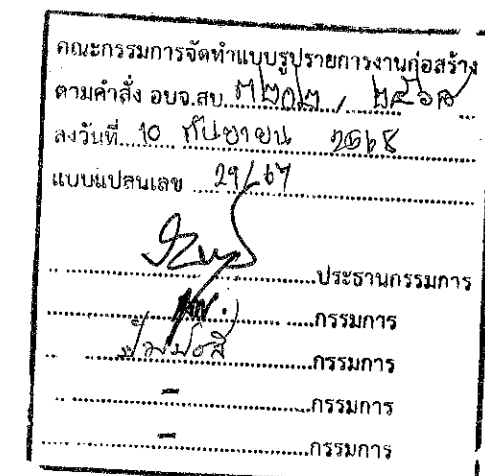 คณะกรรมการจัดทำแบบรูปรายการงานก่อสร้าง
ตามคำสั่ง อบจ.สบ. ๓๒๐๒ / ๒๕๖๘
ลงวันที่ 10 กันยายน 2568
แบบแปลนเลข 29/67
ประธานกรรมการ
กรรมการ
กรรมการ
- กรรมการ
- กรรมการ